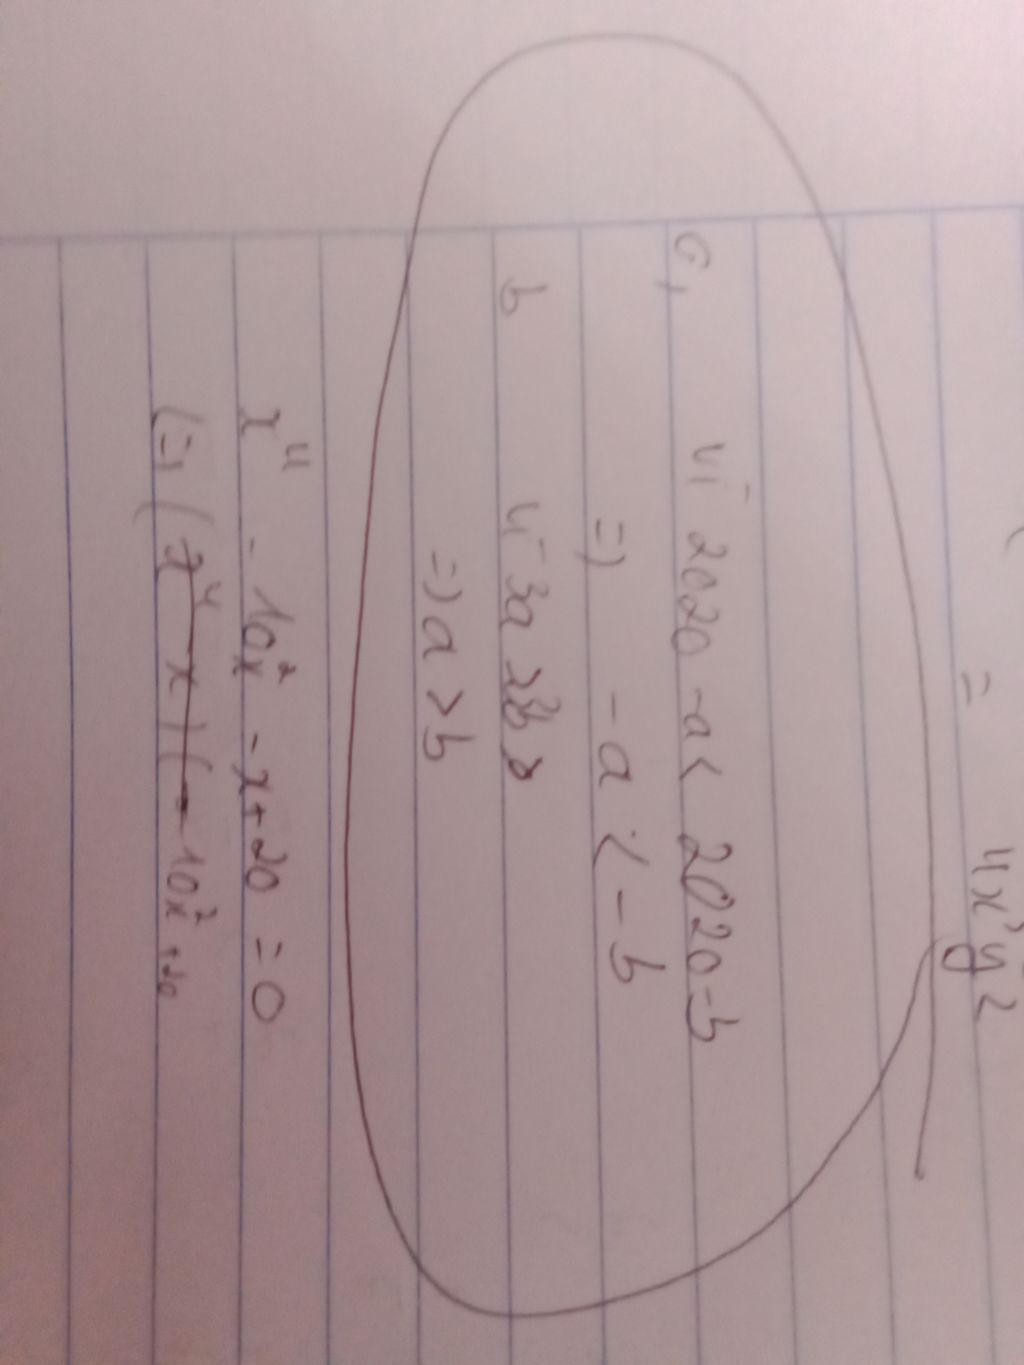 = 4x²y²
a, Vì 2020 - a < 2020 - b
=) - a < - b
b Vì 3a > 3b
=) a > b
x⁴ - 10x² - x + 20 = 0
(=) (x⁴ - x) (- 10x² + 20